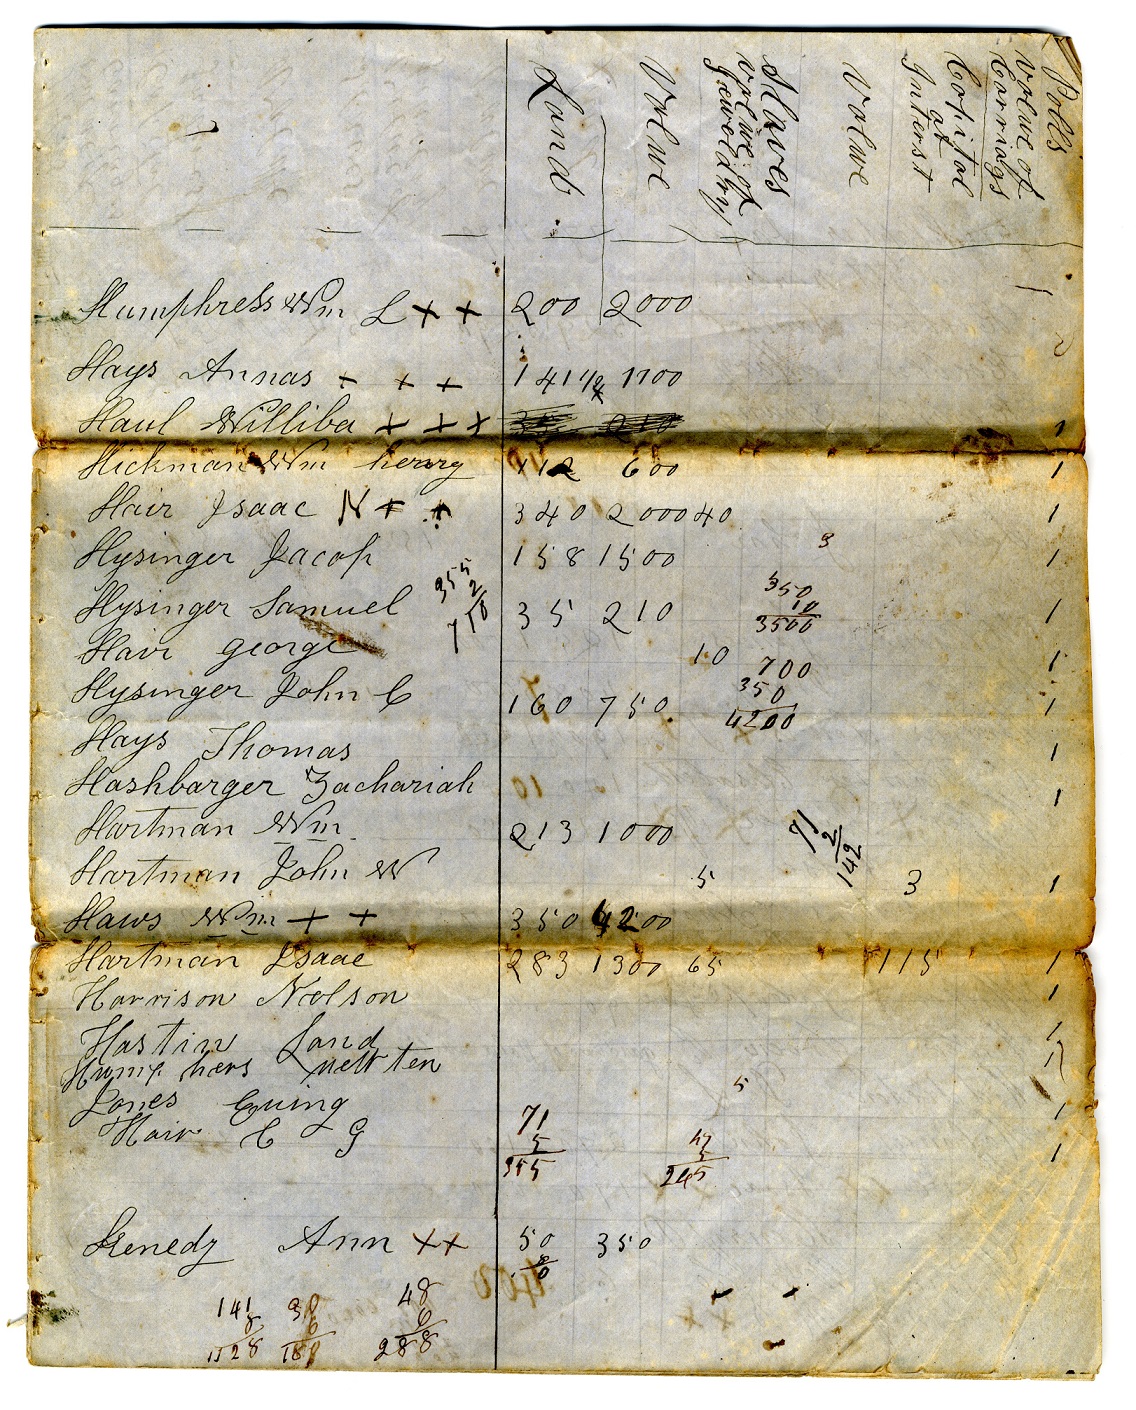 Land
Value
Slaves
value of
Jeweldry
Value
Capital
at
Interst
value of
Carriags
Polls
Humphress Wm L + + 200 2000 1
Hays Annas + + + 141 1/2 1700
Haul Williba + + + 1
Hickman Wm henry 112 600 1
Hair Isaac N + + 340 2000 40 1
Hysinger Jacop 158 1500 3 1
355
2
710
Hysinger Samuel 35 210 1
350
10
3500
Hair george 10 1
700
350
4200
Hysinger John C 160 750 1
Hays Thomas 1
Hashbarger Zachariah 10 1
Hartman Wm 213 1000
71
2
142
Hartman John W 5 3 1
Haws Wm + + 350 4200
Hartman Isaac 283 1300 65 115 1
Harrison Nelson 1
Hastin Land 1
Humphers 1
Jones Ewing 5 1
Hair C G 1
71
5
355
47
5
245
Kenedy Ann x x 50 350
400
141
8
1128
48
6
288